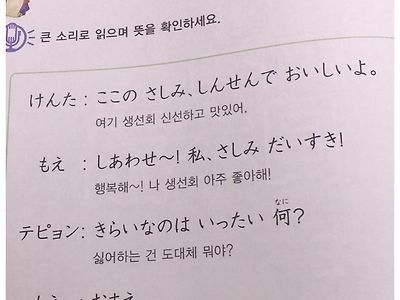 큰 소리로 읽으며 뜻을 확인하세요.
けんた : ここの さしみ、しんせんで おいしいよ。
여기 생선회 신선하고 맛있어.
もえ : しあわせ〜! 私、さしみ だいすき!
행복해~! 나 생선회 아주 좋아해!
なに
テピョン : きらいなのは いったい 何?
싫어하는 건 도대체 뭐야?